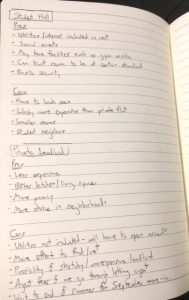 Student Hall
Pros
- Utilities/internet included in rent
- Social events
- May have facilities such as gym, cinema
- Can trust rooms to be at certain standard
- Onsite security
Cons
- Have to book soon
- Likely more expensive than private flat
- Smaller rooms
- Student neighbours
Private Landlord
Pros
- Less expensive
- Better kitchen/living space
- More privacy
- More choice in neighborhoods
Cons
- Utilities not included - will have to open accounts
- More effort to find first
- Possibility of sketchy/unresponsive landlord
- Agent fees if we go through letting agent
- Wait to end of summer for September move-in